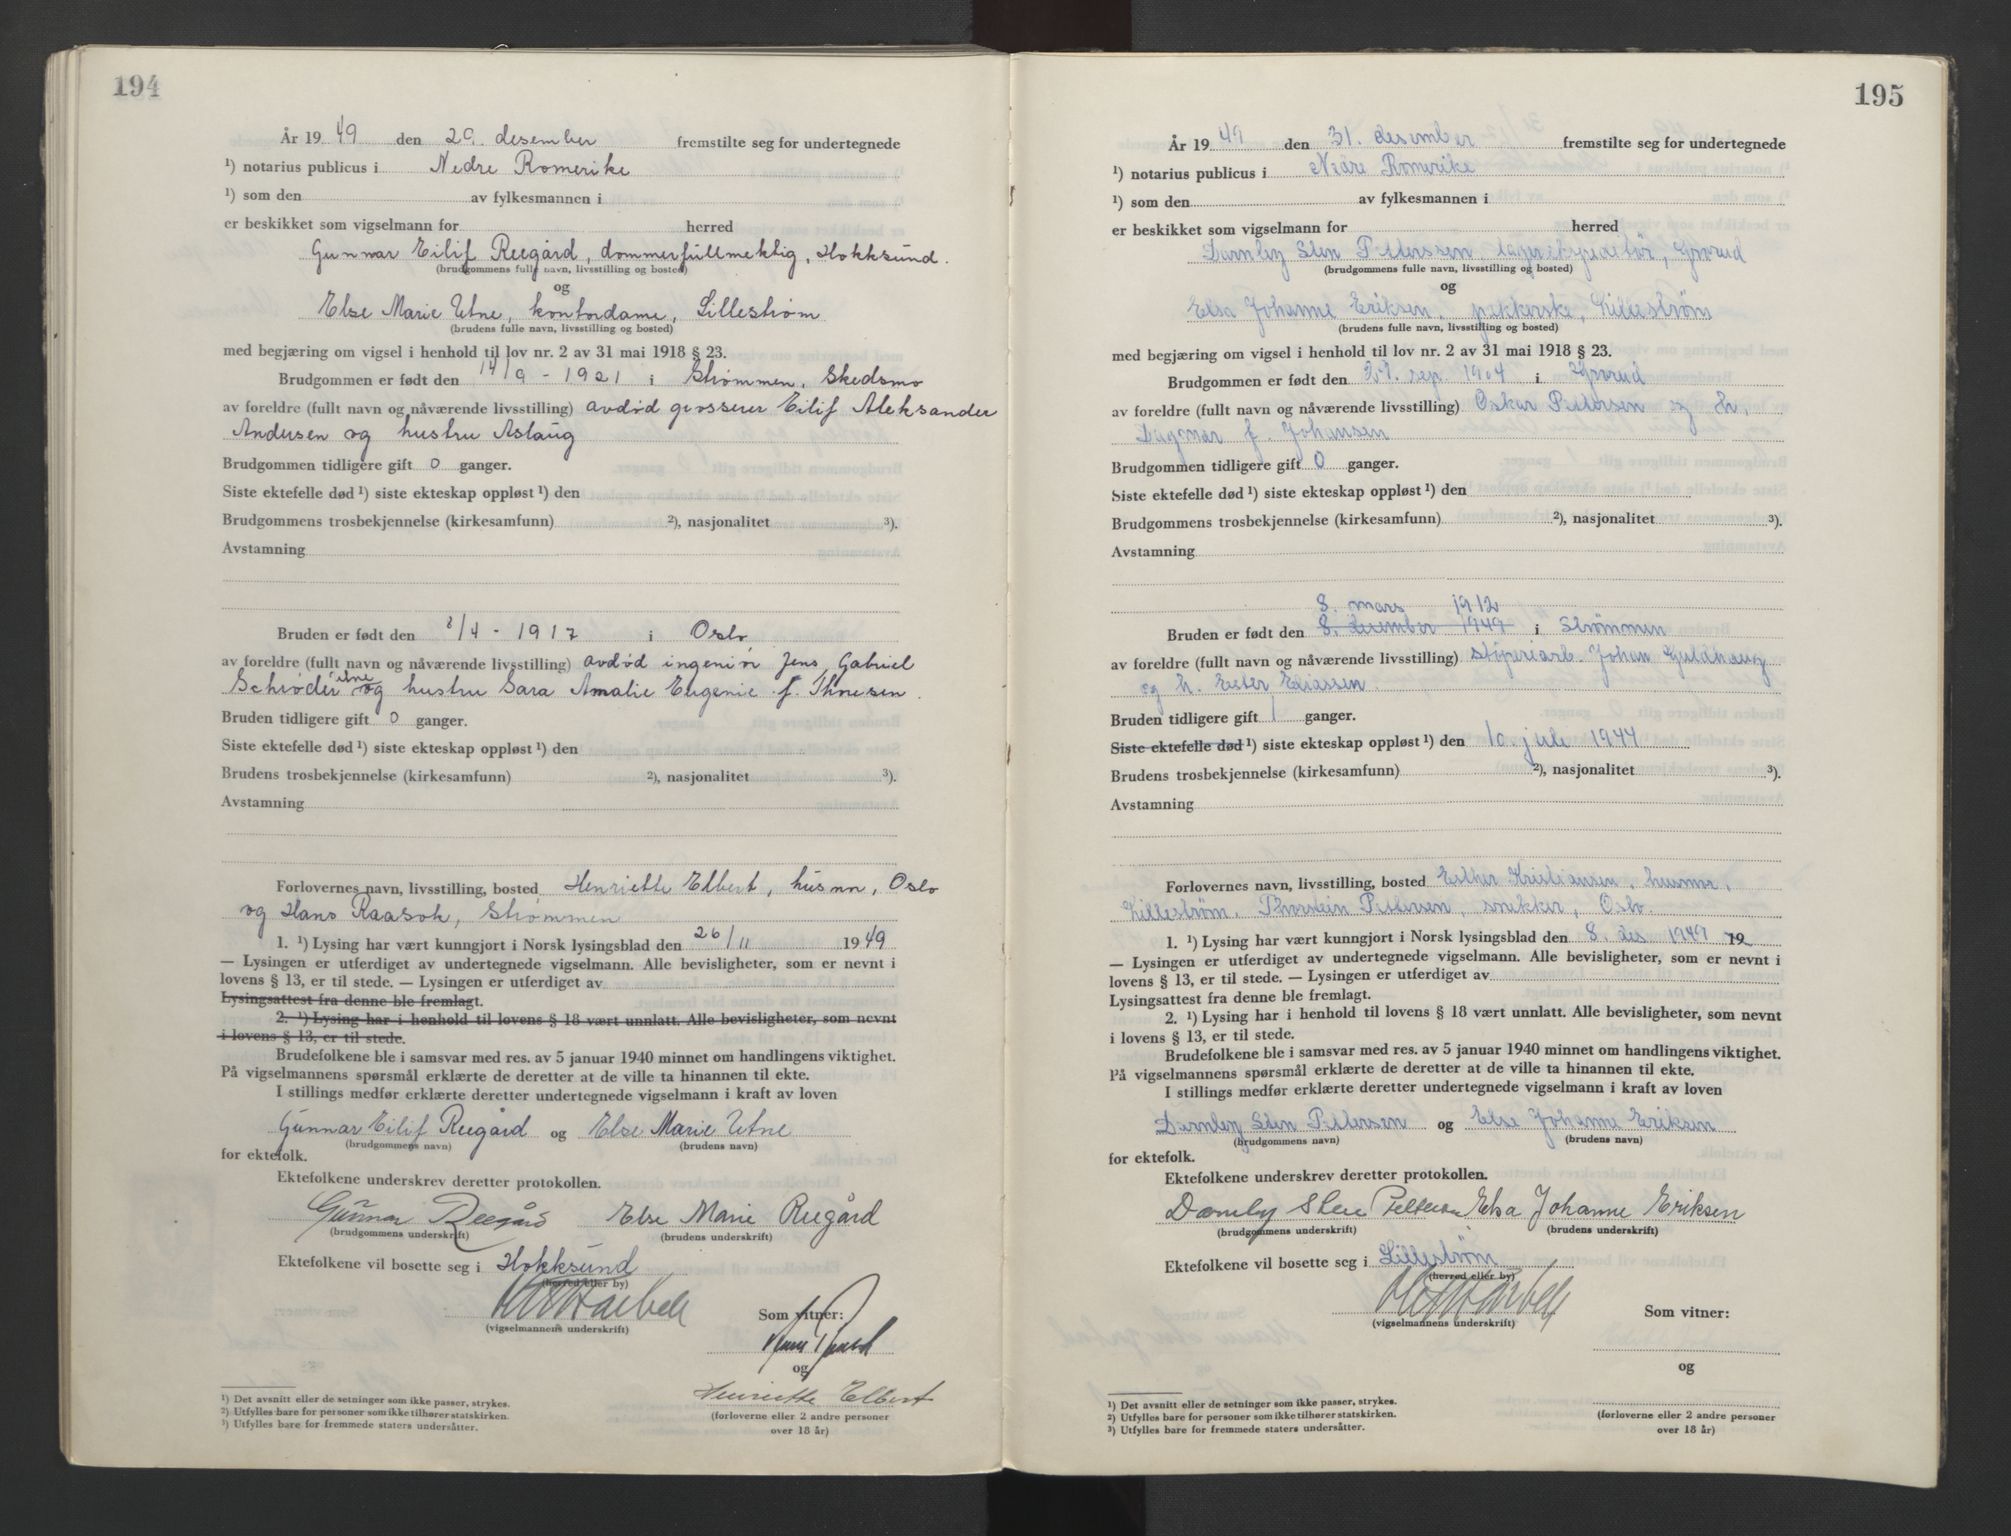 194
År 19 49 den 29. desember fremstilte seg for undertegnede
¹) notarius publicus i Nedre Romerike
¹) som den av fylkesmannen i
er beskikket som vigselmann for herred
Gunnar Eilif Reegård, dommerfullmektig, Hokksund.
(brudgommens fulle navn, livsstilling og bosted)
og
Else Marie Utne, kontordame, Lillestrøm
(brudens fulle navn, livsstilling og bosted)
med begjæring om vigsel i henhold til lov nr. 2 av 31 mai 1918 § 23.
Brudgommen er født den 14/9 - 1921 i Strømmen, Skedsmo
av foreldre (fullt navn og nåværende livsstilling) avdød grosserer Eilif Aleksander
Andersen og hustru Aslaug
Brudgommen tidligere gift 0 ganger.
Siste ektefelle død ¹) siste ekteskap oppløst ¹) den
Brudgommens trosbekjennelse (kirkesamfunn) ²), nasjonalitet ³).
Avstamning
Bruden er født den 8/4 - 1917 i Oslo
av foreldre (fullt navn og nåværende livsstilling) avdød ingeniør Jens Gabriel
Schrøder Utne og hustru Sara Amalie Eugenie f. Thnesen.
Bruden tidligere gift 0 ganger.
Siste ektefelle død ¹) siste ekteskap oppløst ¹) den
Brudens trosbekjennelse (kirkesamfunn) ²), nasjonalitet ³).
Avstamning
Forlovernes navn, livsstilling, bosted Henriette Elbert, husmn, Oslo
og Hans Raasok, Strømmen
1. ¹) Lysing har vært kunngjort i Norsk lysingsblad den 26/11 1949
— Lysingen er utferdiget av undertegnede vigselmann. Alle bevisligheter, som er nevnt i
lovens § 13, er til stede. — Lysingen er utferdiget av
Lysingsattest fra denne ble fremlagt.
2. ¹) Lysing har i henhold til lovens § 18 vært unnlatt. Alle bevisligheter, som nevnt
i lovens § 13, er til stede.
Brudefolkene ble i samsvar med res. av 5 januar 1940 minnet om handlingens viktighet.
På vigselmannens spørsmål erklærte de deretter at de ville ta hinannen til ekte.
I stillings medfør erklærte deretter undertegnede vigselmann i kraft av loven
Gunnar Eilif Reegård og Else Marie Utne
(brudgommens navn) (brudens navn)
for ektefolk.
Ektefolkene underskrev deretter protokollen.
Gunnar Reegård Else Marie Reegård
(brudgommens underskrift) (brudens underskrift)
Ektefolkene vil bosette seg i Hokksund
(herred eller by)
Som vitner:
(vigselmannens underskrift)
og
Henriette Elbert
(forloverne eller 2 andre personer
over 18 år)
¹) Det avsnitt eller de setninger som ikke passer, strykes.
²) Utfylles bare for personer som ikke tilhører statskirken.
³) Utfylles bare for fremmede staters undersåtter.
195
År 19 49 den 31. desember fremstilte seg for undertegnede
¹) notarius publicus i Nedre Romerike
¹) som den av fylkesmannen i
er beskikket som vigselmann for herred
Darnley Sten Petterssen, lagerekspeditør, Grorud
(brudgommens fulle navn, livsstilling og bosted)
og
Elsa Johanne Eriksen, pakkerske, Lillestrøm
(brudens fulle navn, livsstilling og bosted)
med begjæring om vigsel i henhold til lov nr. 2 av 31 mai 1918 § 23.
Brudgommen er født den sep. 1904 i Grorud
av foreldre (fullt navn og nåværende livsstilling) Oskar Pettersen og hr.
Dagmar f. Johansen
Brudgommen tidligere gift 0 ganger.
Siste ektefelle død ¹) siste ekteskap oppløst ¹) den
Brudgommens trosbekjennelse (kirkesamfunn) ²), nasjonalitet ³).
Avstamning
8. mars 1912
Bruden er født den 8. desember 1949 i Strømmen
av foreldre (fullt navn og nåværende livsstilling) støperiarb. Johan Guldhaug
og h. Ester Eliassen
Bruden tidligere gift 1 ganger.
Siste ektefelle død ¹) siste ekteskap oppløst ¹) den 10. juli 1944
Brudens trosbekjennelse (kirkesamfunn) ²), nasjonalitet ³).
Avstamning
Forlovernes navn, livsstilling, bosted Esther Kristiansen, husmor,
Lillestrøm. Thorstein Pettersen, snekker, Oslo.
1. ¹) Lysing har vært kunngjort i Norsk lysingsblad den 8. des 1949 19
— Lysingen er utferdiget av undertegnede vigselmann. Alle bevisligheter, som er nevnt i
lovens § 13, er til stede. — Lysingen er utferdiget av
Lysingsattest fra denne ble fremlagt.
2. ¹) Lysing har i henhold til lovens § 18 vært unnlatt. Alle bevisligheter, som nevnt
i lovens § 13, er til stede.
Brudefolkene ble i samsvar med res. av 5 januar 1940 minnet om handlingens viktighet.
På vigselmannens spørsmål erklærte de deretter at de ville ta hinannen til ekte.
I stillings medfør erklærte deretter undertegnede vigselmann i kraft av loven
Darnley Sten Pettersen og Else Johanne Eriksen
(brudgommens navn) (brudens navn)
for ektefolk.
Ektefolkene underskrev deretter protokollen.
Darnley Sten Pettersen Elsa Johanne Eriksen
(brudgommens underskrift) (brudens underskrift)
Ektefolkene vil bosette seg i Lillestrøm
(herred eller by)
Som vitner:
(vigselmannens underskrift)
og
(forloverne eller 2 andre personer
over 18 år)
¹) Det avsnitt eller de setninger som ikke passer, strykes.
²) Utfylles bare for personer som ikke tilhører statskirken.
³) Utfylles bare for fremmede staters undersåtter.